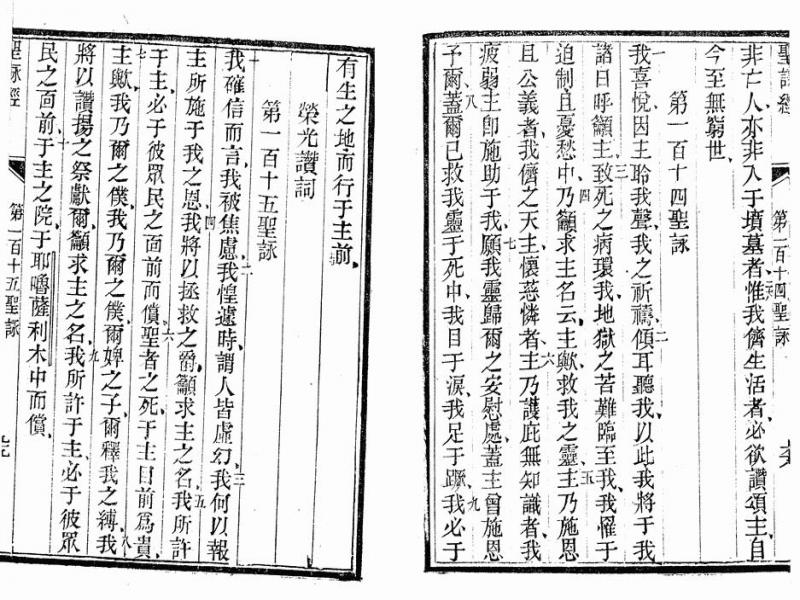 聖詠經
第一百十四聖詠
非亡人亦非入于墳墓者、惟我儕生活者、必欲讚頌主、自
今至無窮世、
第一百十四聖詠
一我喜悅、因主聆我聲、我之祈禱、二傾耳聽我、以此我將于我
諸日呼籲主、三致死之病環我、地獄之苦難臨至我、我罹于
迫制且憂愁中、四乃籲求主名云、主歟、救我之靈、五主乃施恩
且公義者、我儕之天主、懷慈憐者、六主乃護庇無知識者、我
疲弱、主卽施助于我、七願我靈歸爾之安慰處、蓋主曾施恩
予爾、八蓋爾已救我靈于死中、我目于淚、我足于蹶、九我必于
有生之地而行于主前、
榮光讚詞
第一百十五聖詠
一我確信而言、我被焦慮、二我惶遽時、謂人皆虛幻、三我何以報
主所施于我之恩、四我將以拯救之爵、籲求主之名、五我所許
于主、必于彼眾民之面前而償、六聖者之死、于主目前爲貴、
七主歟、我乃爾之僕、我乃爾之僕、爾婢之子、爾釋我之縛、八我
將以讚揚之祭獻爾、籲求主之名、九我所許于主、必于彼眾
民之面前、十于主之院、于耶嚕薩利木中而償、
聖詠經
第一百十五聖詠